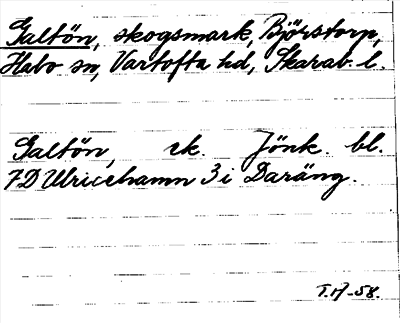 Galtön, skogsmark, Björstorp,
Habo sn, Vartofta hd, Skarab. l.
Galtön, ek. Jönk. bl.
7D Ulricehamn 3i Daräng.
T.H-58.